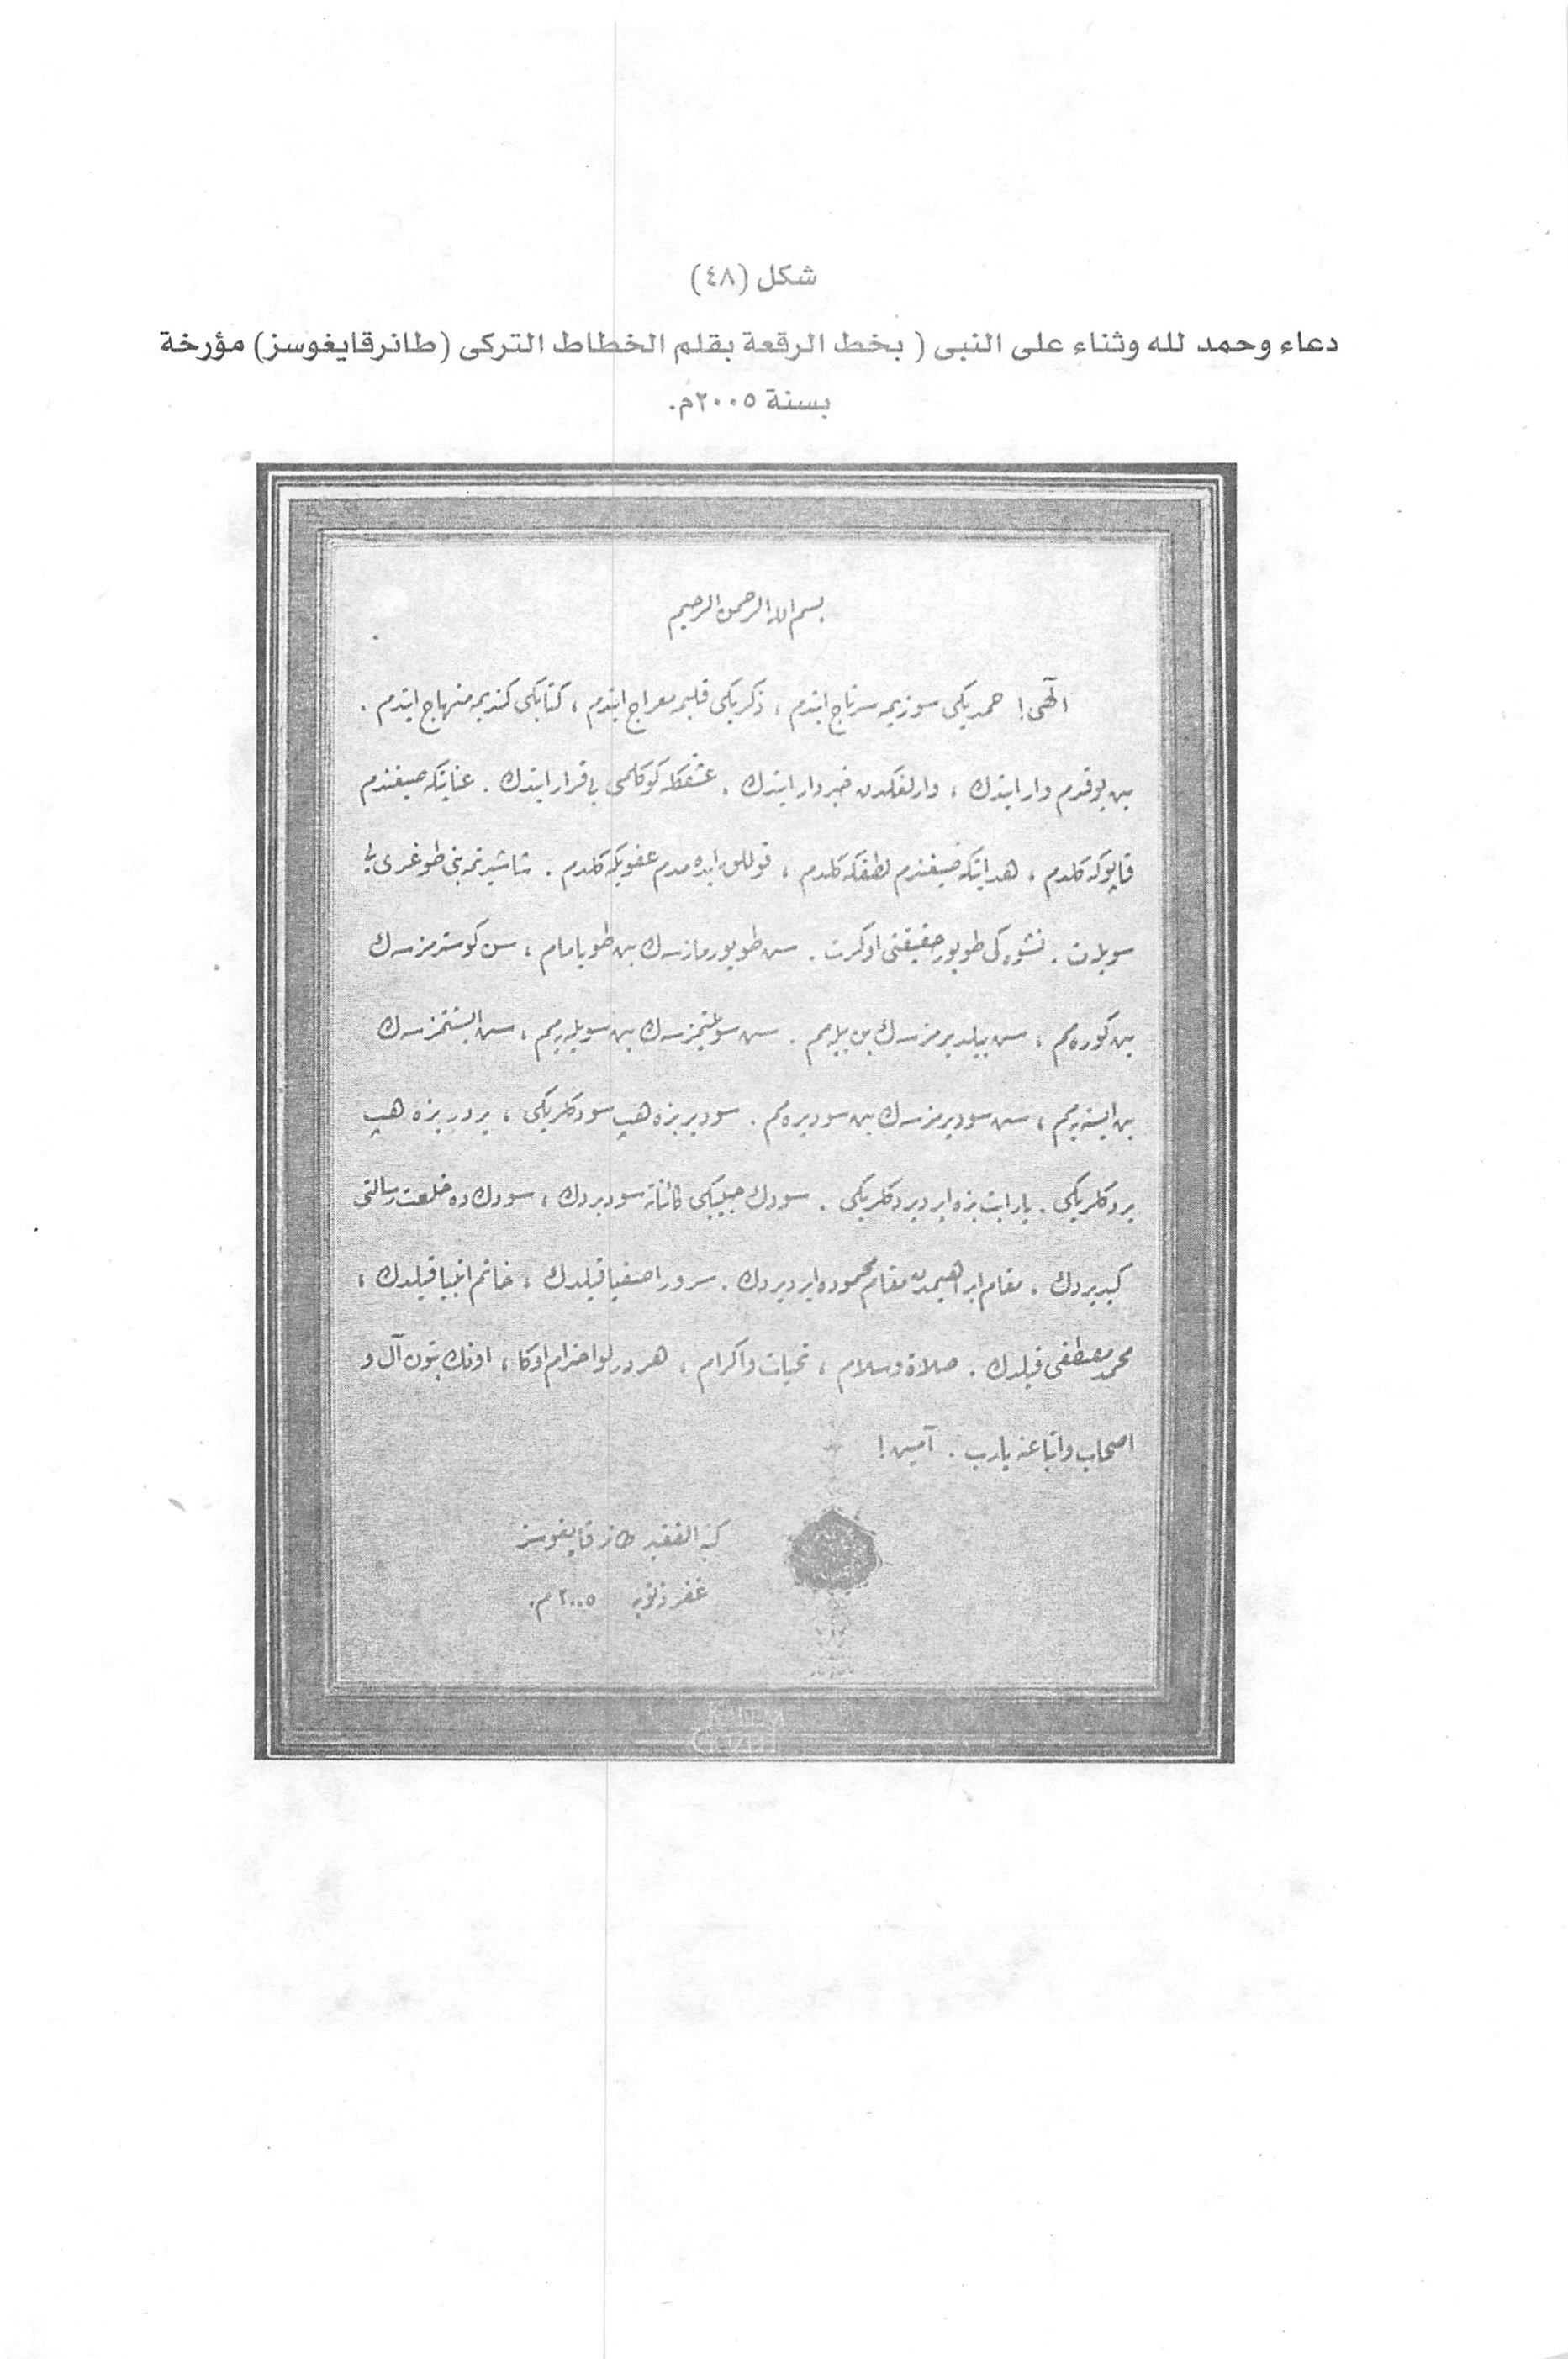 شكل (٤٨)
دعاء وحمد لله وثناء على النبى ( بخط الرقعة بقلم الخطاط التركى (طانرقايغوسز) مؤرخة
بسنة ٢٠٠٥م.
بسم الله الرحمن الرحيم
الٓهى! حمديكى سوزيمه سرتاج ايتدم ، ذكريكى قلبمه معراج ايتدم ، كتابكى كنديمه منهاج ايتدم .
بن يوقدم وار ايتدك ، وارلغكدن خبردار ايتدك ، عشقكله كوكلمى بى قرار ايتدك . عنايتكه صيغندم
قاپوكه كلدم ، هدايتكه صيغندم لطفكه كلدم ، قوللق ايده مدم عفويكه كلدم . شاشيرتمه بنى طوغرى يى
سويلت . نشوه كى طويور حقيقتى اوكرت . سن طويورمازسه ك بن طويامام ، سن كوسترمزسه ك
بن كوره مم ، سن بيلديرمزسه ك بن بيله مم . سن سويلتمزسه ك بن سويليه مم ، سن ايستتمزسه ك
بن ايستيه مم ، سن سوديرمزسه ك بن سوديره مم . سودير بزه هپ سودكلريكى ، يردير بزه هپ
يردكلريكى . يار ايت بزه ايرديردكلريكى . سودك حبيبكى كائناته سوديردك ، سودك ده خلعت رسالتى
كيديردك . مقام ابراهيمدن مقام محموده ايرديردك . سرور اصفيا قيلدك ، خاتم انبيا قيلدك ،
محمد مصطفى قيلدك . صلاة وسلام ، تحيات واكرام ، هر درلو احترام اوكا ، اونك بتون آل و
اصحاب واتباعنه يارب . آمين!
كتبه الفقير طانر قايغوسز
غفر ذنوبه ٢٠٠٥ م.
KALEM
GÜZELİ